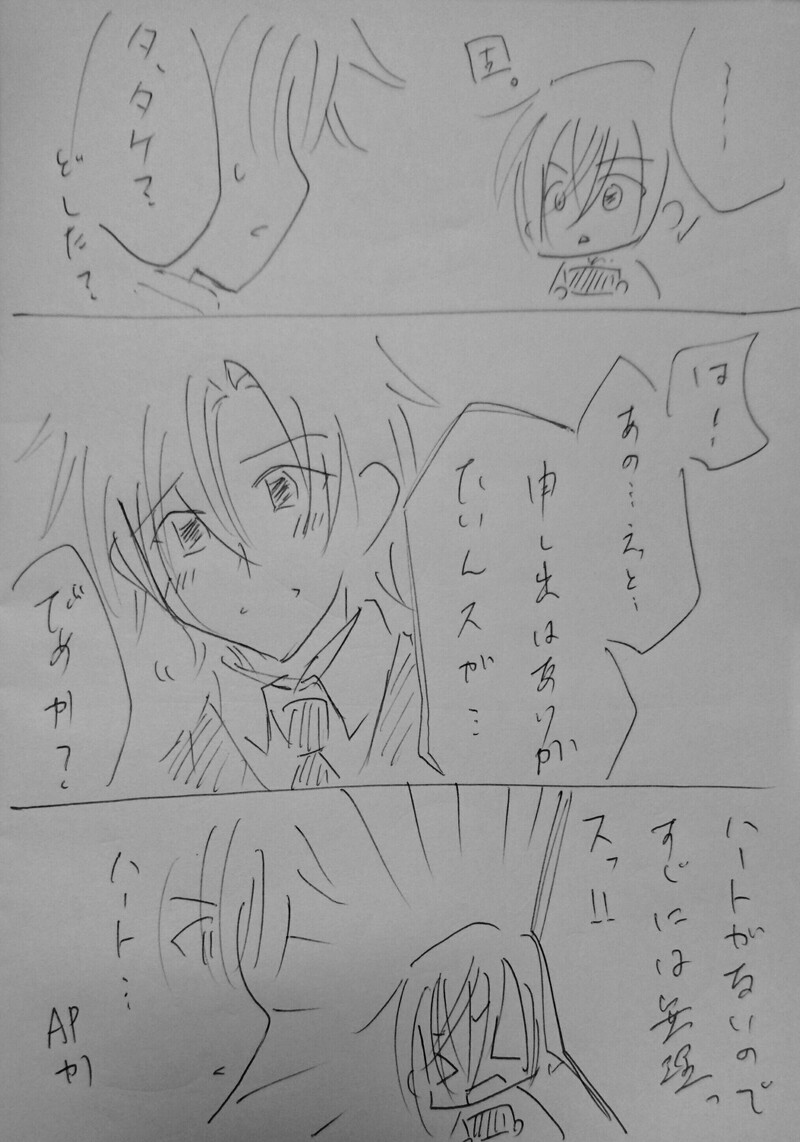 ……
固。
タ、タケ？
どした？
はー！
あの…えと…
申し出はありが
たいんスが…
だめか？
ハートがないので
すぐには無理っ
スっ!!
ハート…
APか